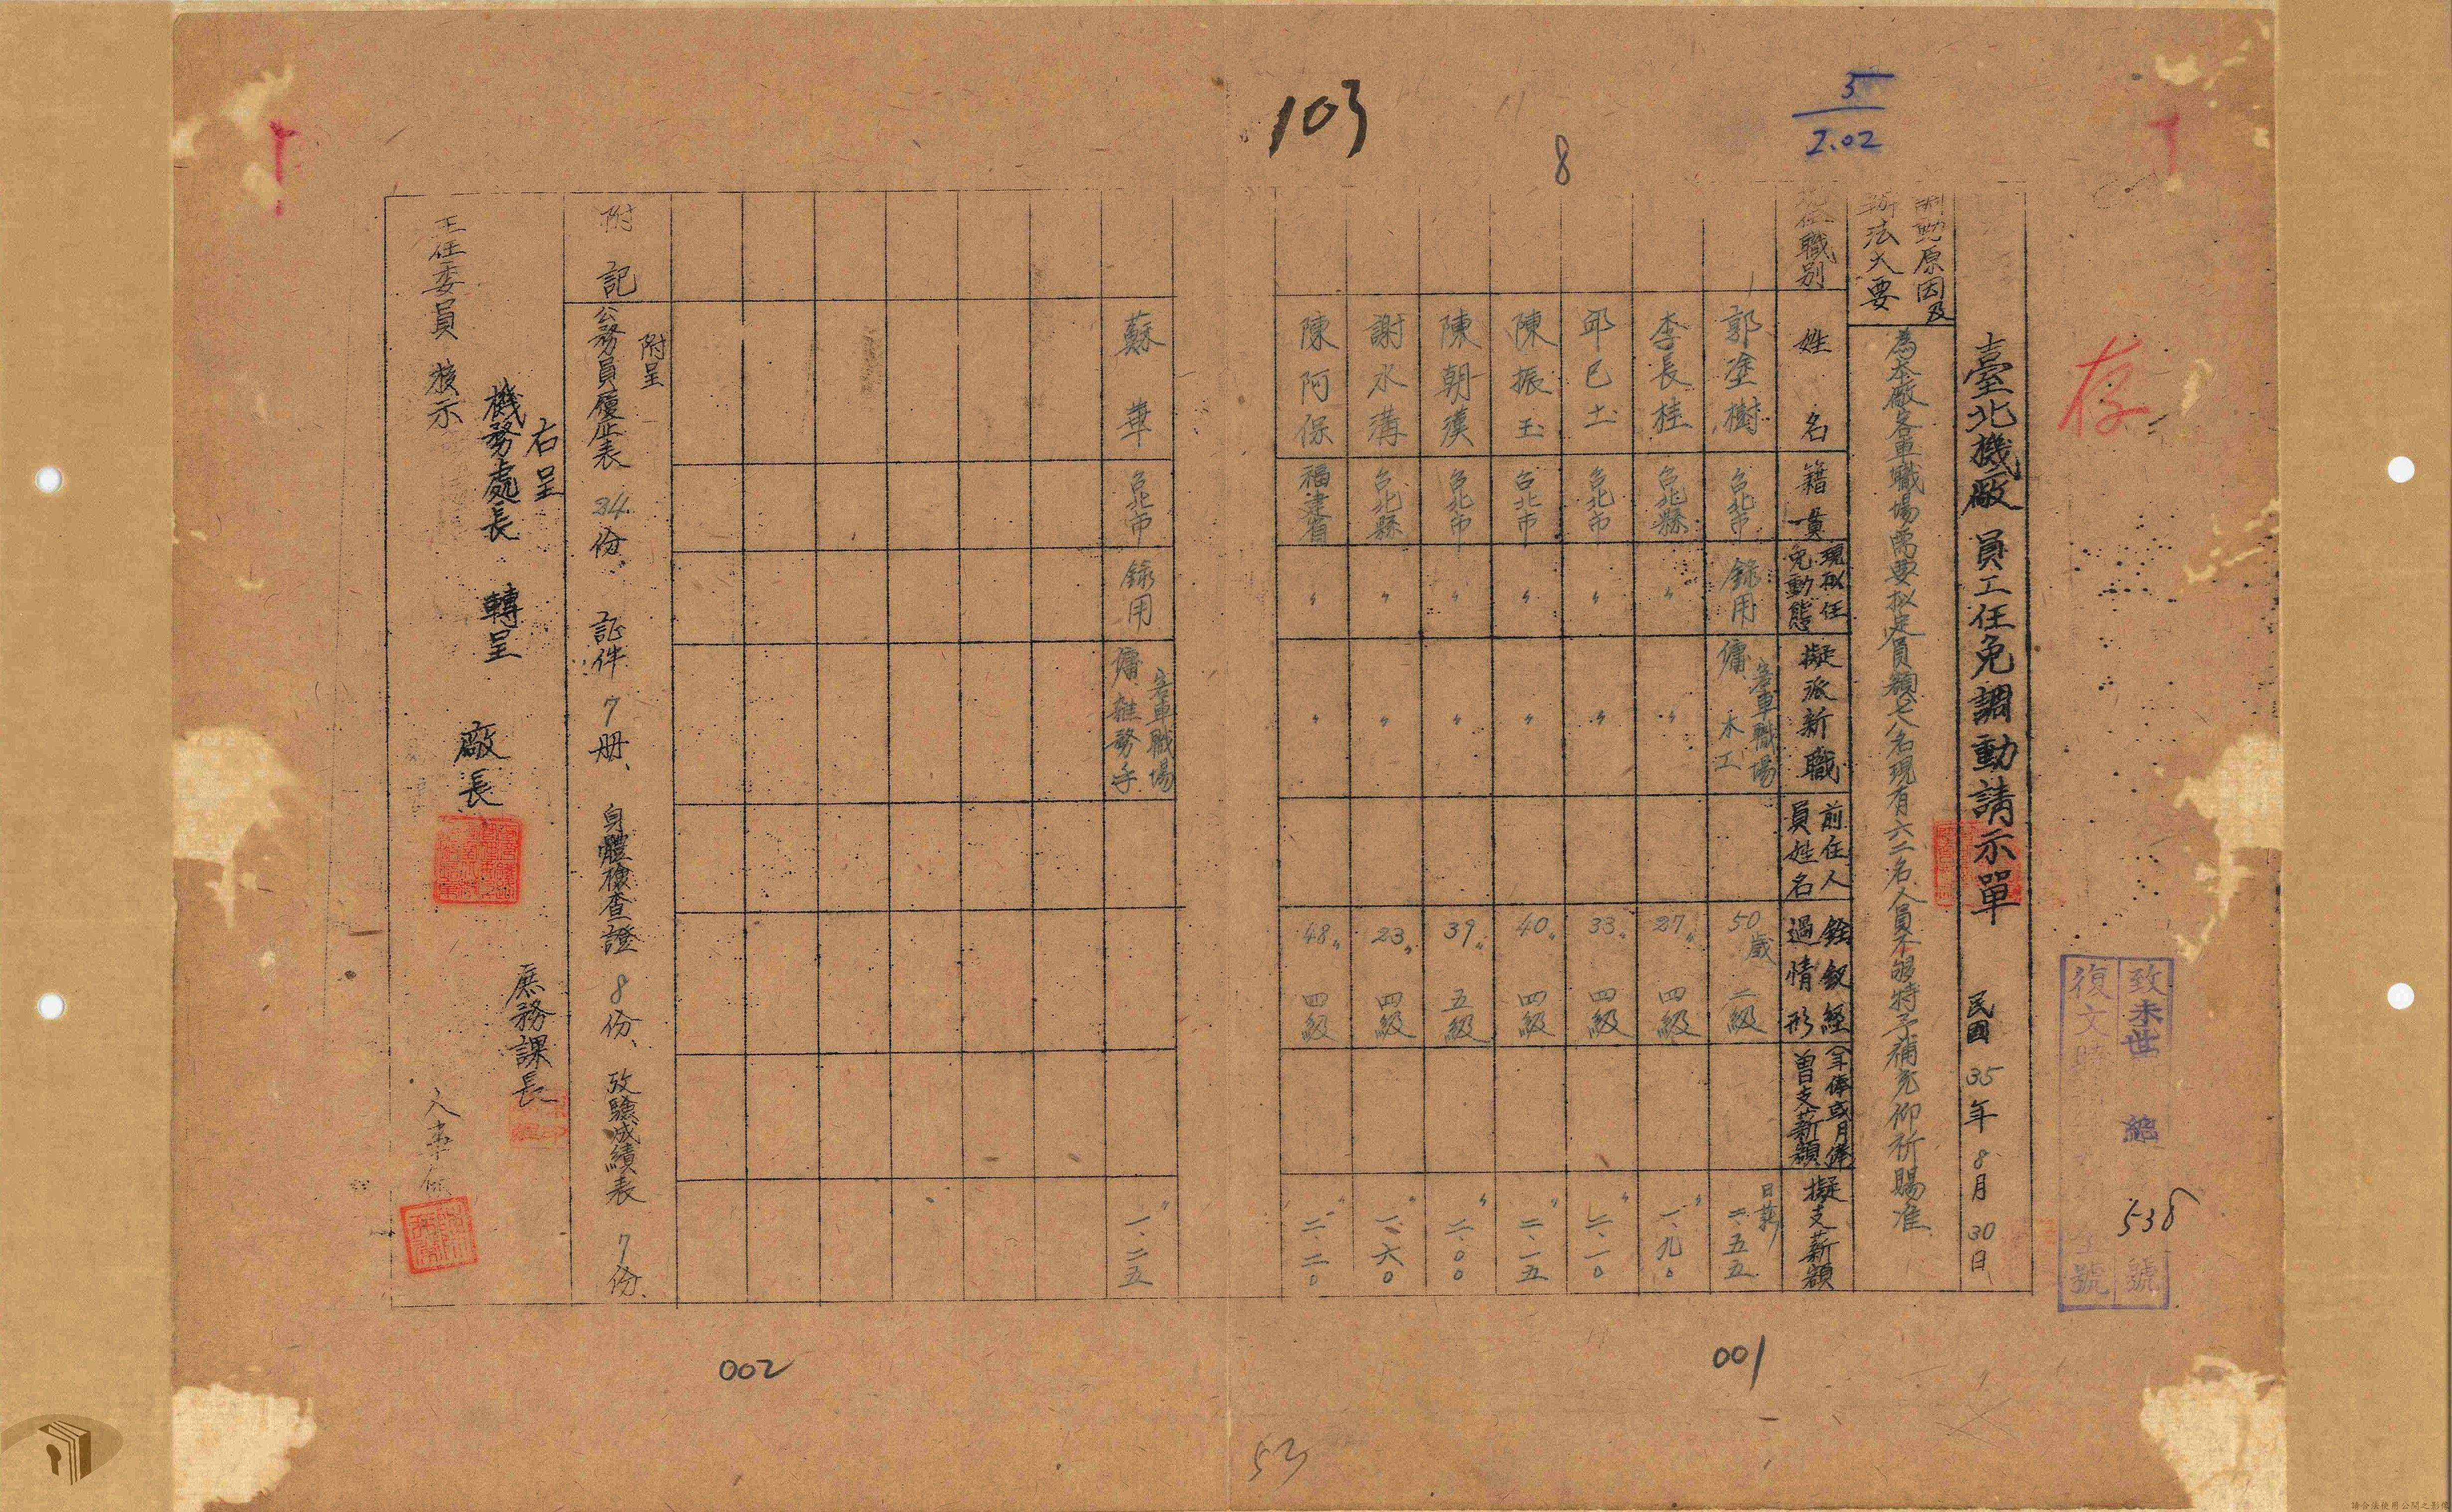 103
8
5
2.02
存
致未世 總 538 號
復文時
號
臺北機廠員工任免調動請示單 民國35年8月30日
調動原因及辦法大要
為本廠客車職場需要拟定員額七八名現有六二名人員不够特予補充仰祈賜准
現任職別 姓名 籍貫 現拟任免動態 擬派新職 前任人員姓名 銓敘經過情形 年俸或月俸曾支薪額 擬支薪額
郭塗樹 台北市 錄用 客車職場傭 木工 50歲 二級 日薪二、五五
李長桂 台北縣 〃 〃 27〃 四級 〃一、九〇
邱巳土 台北市 〃 〃 33〃 四級 〃二、一〇
陳振玉 台北市 〃 〃 40〃 四級 〃二、一五
陳朝漢 台北市 〃 〃 39〃 五級 〃二、〇〇
謝水溝 台北縣 〃 〃 23〃 四級 〃一、六〇
陳阿保 福建省 〃 〃 48〃 四級 〃二、二〇
蘇華 台北市 錄用 客車職場傭 雜務手 〃一、二五
附記
附呈
公務員履歷表 24份、証件 7册、身體檢查證 8份、攷驗成績表 7份、
右呈
機務處長 轉呈
主任委員 核示
廠長
庶務課長
人事
001
002
53